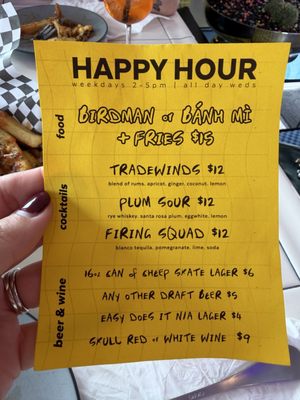 HAPPY HOUR
weekdays 2-5pm | all day weds
food
BIRDMAN or BÁNH MÌ
+ FRIES $15
cocktails
TRADEWINDS $12
blend of rums, apricot, ginger, coconut, lemon
PLUM SOUR $12
rye whiskey, santa rosa plum, eggwhite, lemon
FIRING SQUAD $12
blanco tequila, pomegranate, lime, soda
beer & wine
16oz CAN of CHEEP SKATE LAGER $6
ANY OTHER DRAFT BEER $5
EASY DOES IT N/A LAGER $4
SKULL RED or WHITE WINE $9